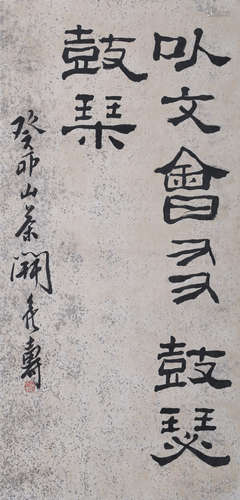 以文會友鼓瑟
鼓琴
癸卯山茶開
壽